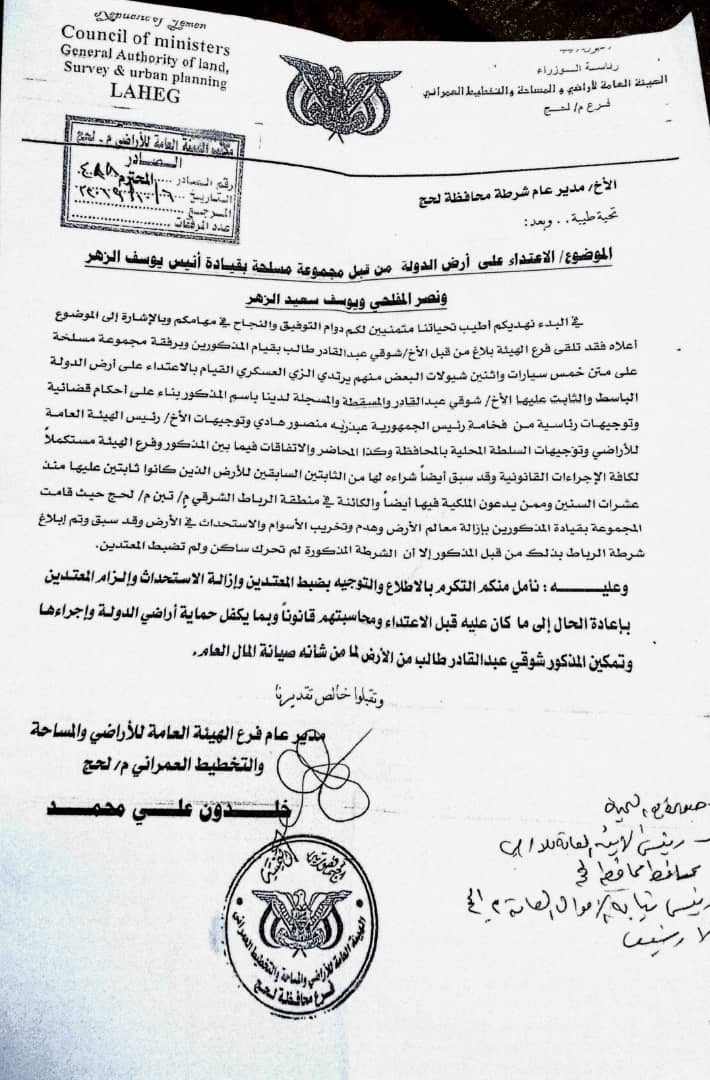 Republic of Yemen
Council of ministers
General Authority of land,
Survey & urban planning
LAHEG
رئاسة الوزراء
الهيئة العامة للأراضي والمساحة والتخطيط العمراني
فرع م/ لحج
مكتب الهيئة العامة للأراضي م - لحج
الصادر
رقم الصادر
التاريخ
المرجع
عدد المرفقات
الأخ/ مدير عام شرطة محافظة لحج
المحترم
تحية طيبة .. وبعد:
الموضوع/ الاعتداء على أرض الدولة من قبل مجموعة مسلحة بقيادة أنيس يوسف الزهر
ونصر المفلحي ويوسف سعيد الزهر
في البدء نهديكم أطيب تحياتنا متمنيين لكم دوام التوفيق والنجاح في مهامكم وبالإشارة إلى الموضوع
أعلاه فقد تلقى فرع الهيئة بلاغ من قبل الأخ/شوقي عبدالقادر طالب بقيام المذكورين وبرفقة مجموعة مسلحة
على متن خمس سيارات واثنين شيولات البعض منهم يرتدي الزي العسكري القيام بالاعتداء على أرض الدولة
الباسط والثابت عليها الأخ/ شوقي عبدالقادر والمسقطة والمسجلة لدينا باسم المذكور بناء على أحكام قضائية
وتوجيهات رئاسية من فخامة رئيس الجمهورية عبدربه منصور هادي وتوجيهات الأخ/ رئيس الهيئة العامة
للأراضي وتوجيهات السلطة المحلية بالمحافظة وكذا المحاضر والاتفاقات فيما بين المذكور وفرع الهيئة مستكملاً
لكافة الإجراءات القانونية وقد سبق أيضاً شراءه لها من الثابتين السابقين للأرض الذين كانوا ثابتين عليها منذ
عشرات السنين وممن يدعون الملكية فيها أيضاً والكائنة في منطقة الرباط الشرقي م/ تبن م/ لحج حيث قامت
المجموعة بقيادة المذكورين بإزالة معالم الأرض وهدم وتخريب الأسوام والاستحداث في الأرض وقد سبق وتم إبلاغ
شرطة الرباط بذلك من قبل المذكور إلا أن الشرطة المذكورة لم تحرك ساكن ولم تضبط المعتدين.
وعليـــــه : نأمل منكم التكرم بالاطلاع والتوجيه بضبط المعتدين وإزالة الاستحداث وإلزام المعتدين
بإعادة الحال إلى ما كان عليه قبل الاعتداء ومحاسبتهم قانوناً وبما يكفل حماية أراضي الدولة وإجراءها
وتمكين المذكور شوقي عبدالقادر طالب من الأرض لما من شانه صيانة المال العام.
وتقبلوا خالص تقديرنا
مدير عام فرع الهيئة العامة للأراضي والمساحة
والتخطيط العمراني م/ لحج
خلدون علي محمد
رئيس الهيئة العامة للاراضي
محافظ محافظة لحج
رئيس نيابة الاموال العامة م/ لحج
الارشيف
الجمهورية اليمنية
الهيئة العامة للأراضي والمساحة والتخطيط العمراني
فرع محافظة لحج